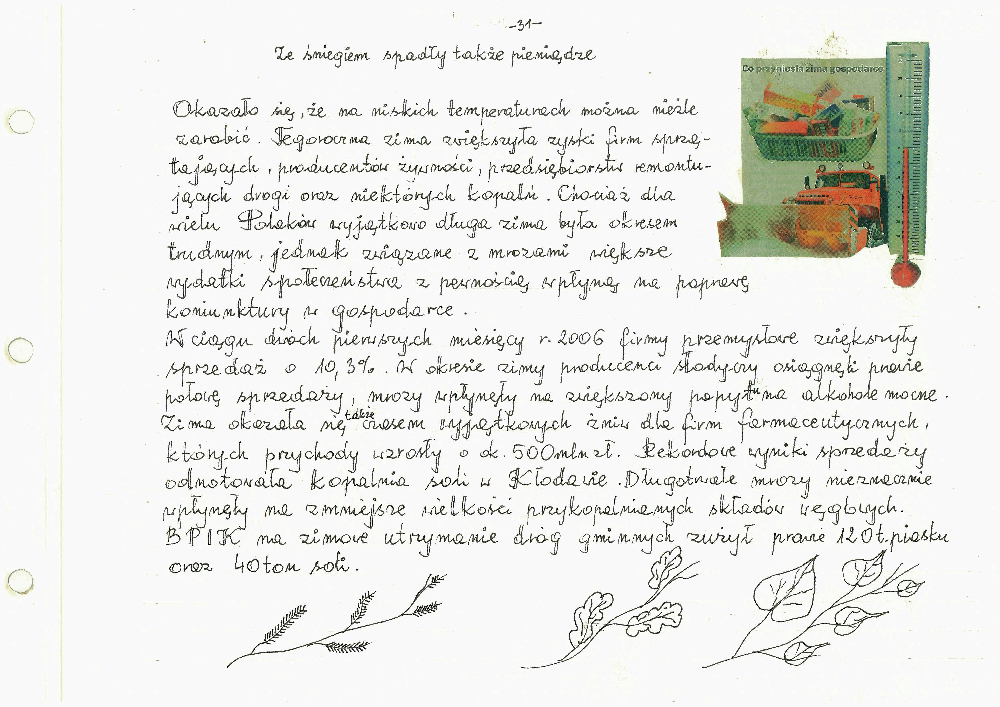 -31-
Ze śniegiem spadły także pieniądze
Co przyniosła zima gospodarce
Okazało się, że na niskich temperaturach można nieźle
zarobić. Tegoroczna zima zwiększyła zyski firm sprzą-
tających, producentów żywności, przedsiębiorstw remontu-
jących drogi oraz niektórych kopalń. Chociaż dla
wielu Polaków wyjątkowo długa zima była okresem
trudnym, jednak związane z mrozami większe
wydatki społeczeństwa z pewnością wpłyną na poprawę
koniunktury w gospodarce.
W ciągu dwóch pierwszych miesięcy r. 2006 firmy przemysłowe zwiększyły
sprzedaż o 10,3%. W okresie zimy producenci słodyczy osiągnęli prawie
połowę sprzedaży, mrozy wpłynęły na zwiększony popyt na alkohole mocne.
Zima okazała się także czasem wyjątkowych żniw dla firm farmaceutycznych,
których przychody wzrosły o ok. 500 mln zł. Rekordowe wyniki sprzedaży
odnotowała kopalnia soli w Kłodawie. Długotrwałe mrozy nieznacznie
wpłynęły na zmniejsze wielkości przykopalnianych składów węglowych.
BPIK na zimowe utrzymanie dróg gminnych zużył prawie 120 t. piasku
oraz 40 ton soli.